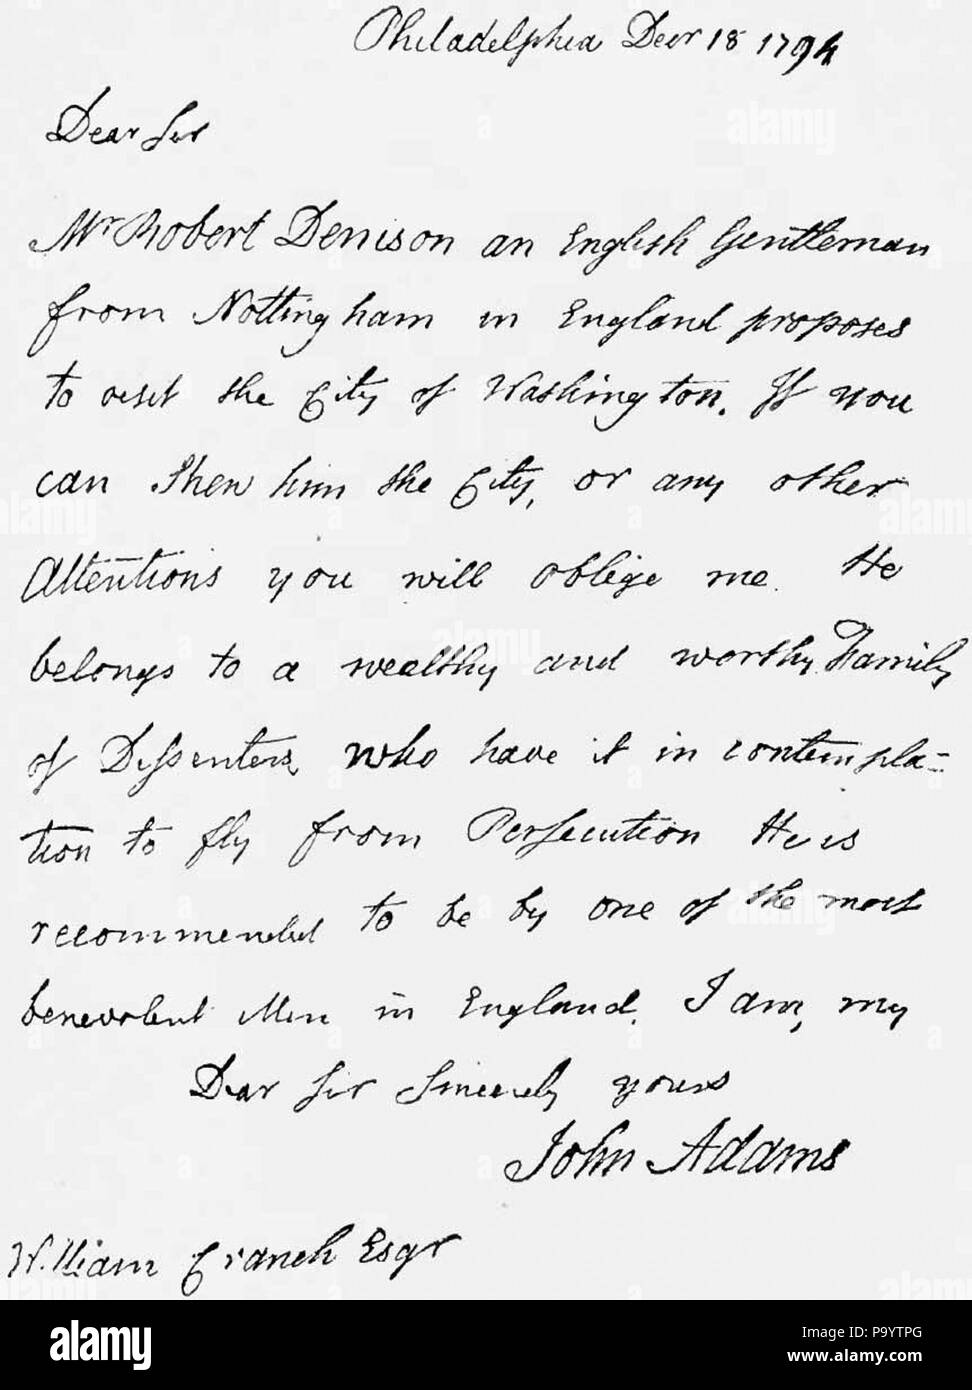 Philadelphia Decr 18 1794
Dear Sir
Mr Robert Denison an English Gentleman
from Nottingham in England proposes
to visit the City of Washington. If you
can shew him the City, or any other
Attentions you will oblige me. He
belongs to a wealthy and worthy Family
of Dissenters, who have it in contempla=
tion to fly from Persecution He is
recommended to be by one of the most
benevolent Men in England. I am, my
Dear Sir Sincerely yours
John Adams
William Cranch Esqr
alamy
Image ID: P9YTPG
www.alamy.com